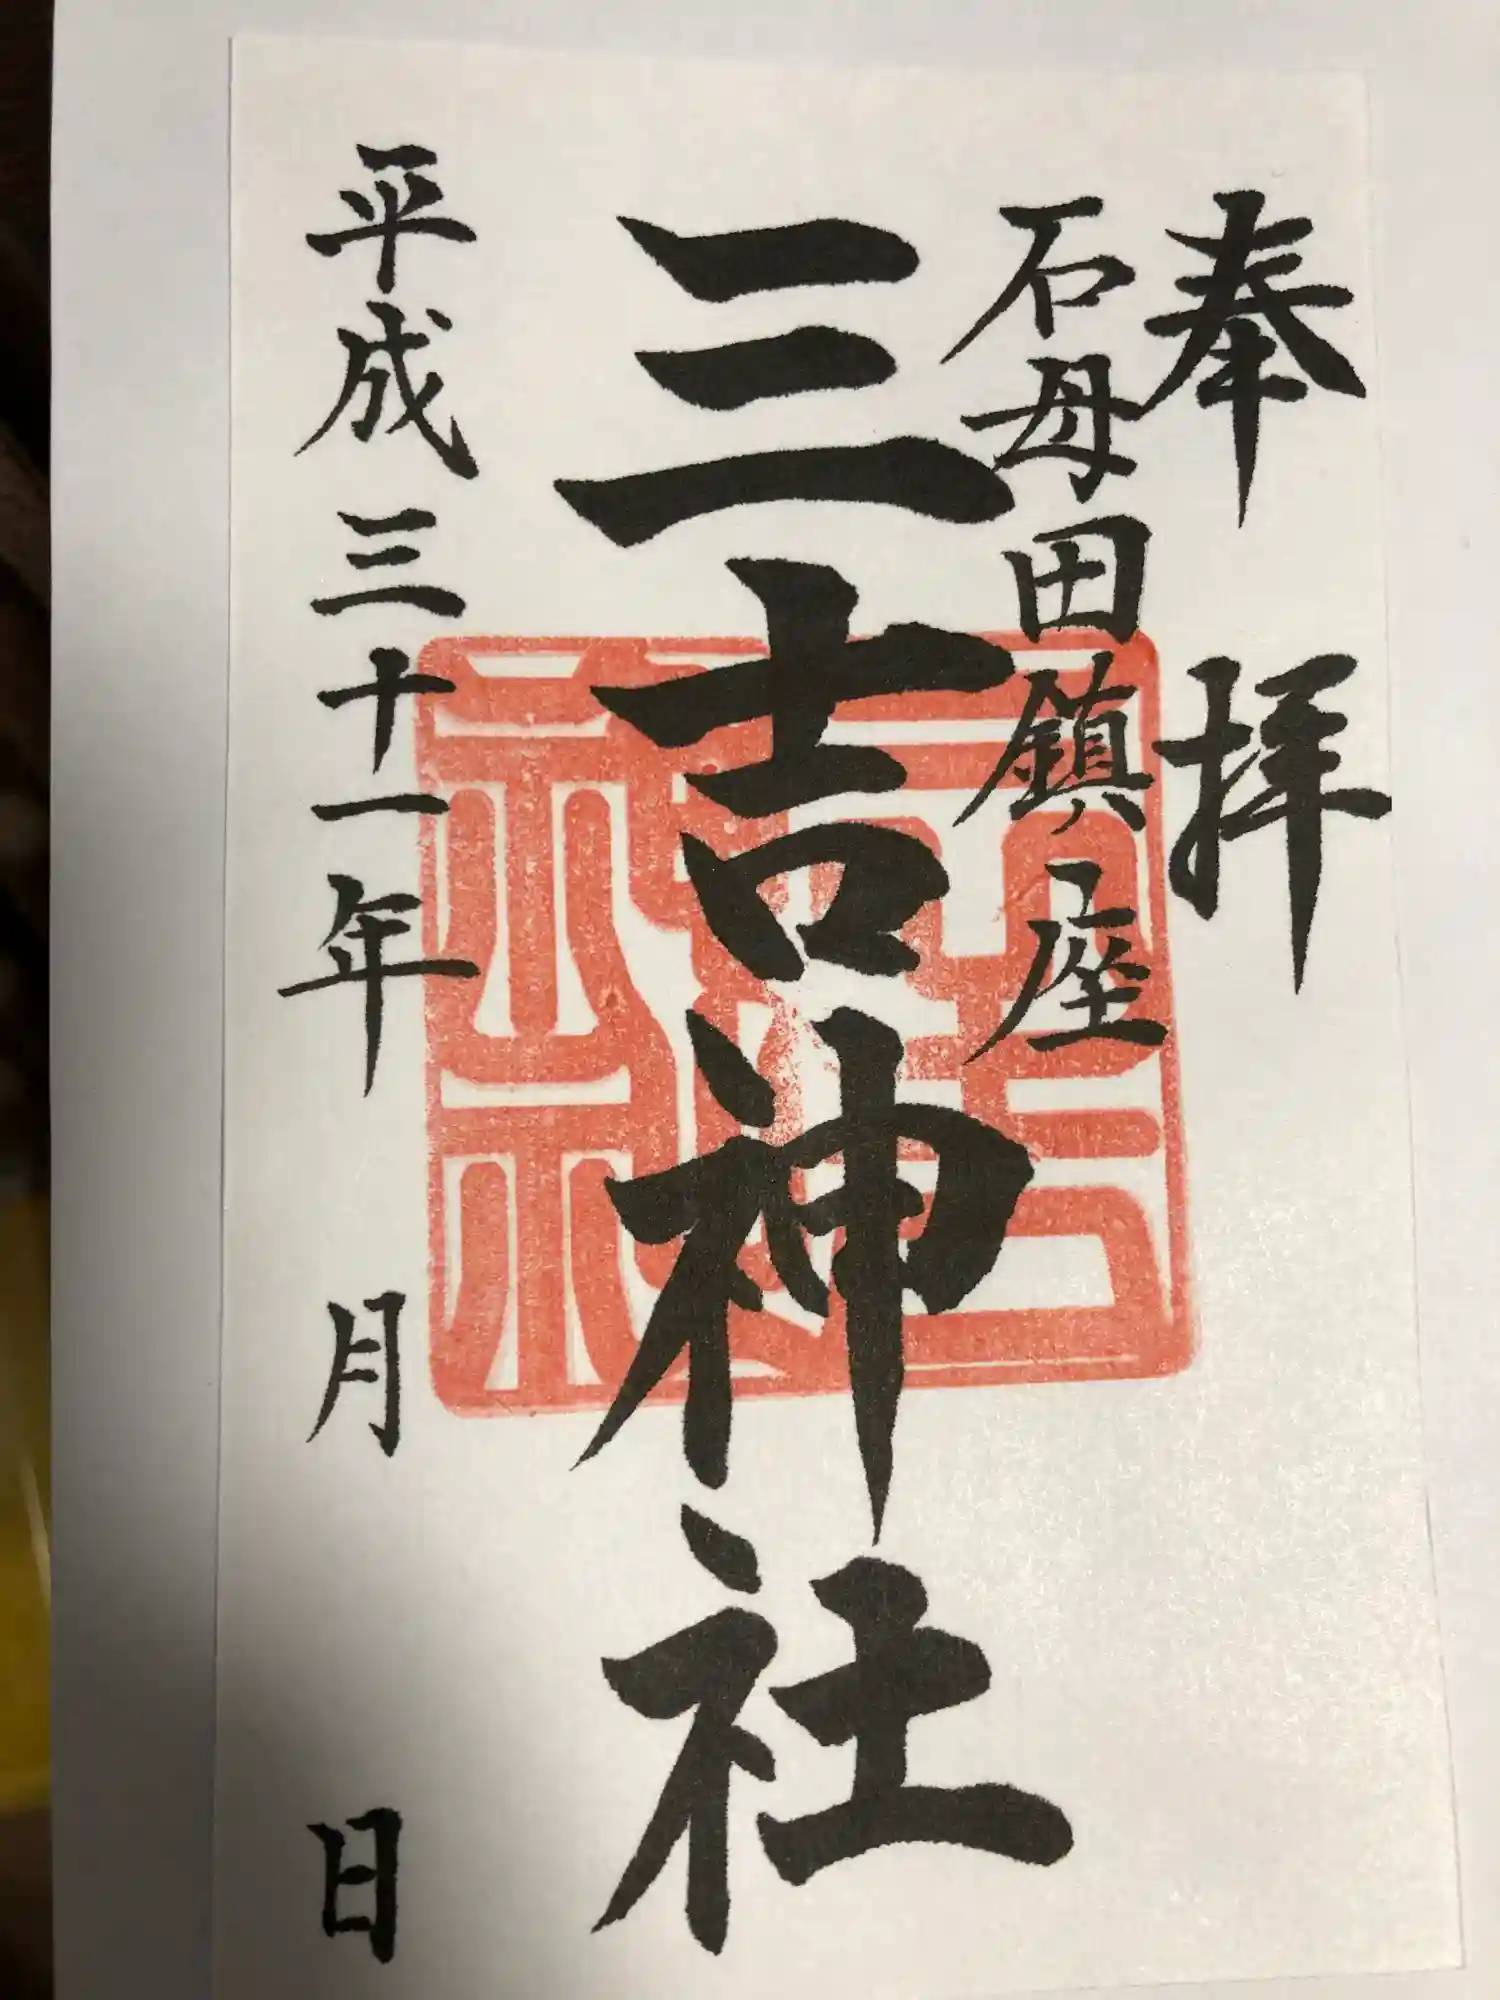 奉拝
石母田鎮座
三吉神社
平成三十一年 月 日
三吉神社